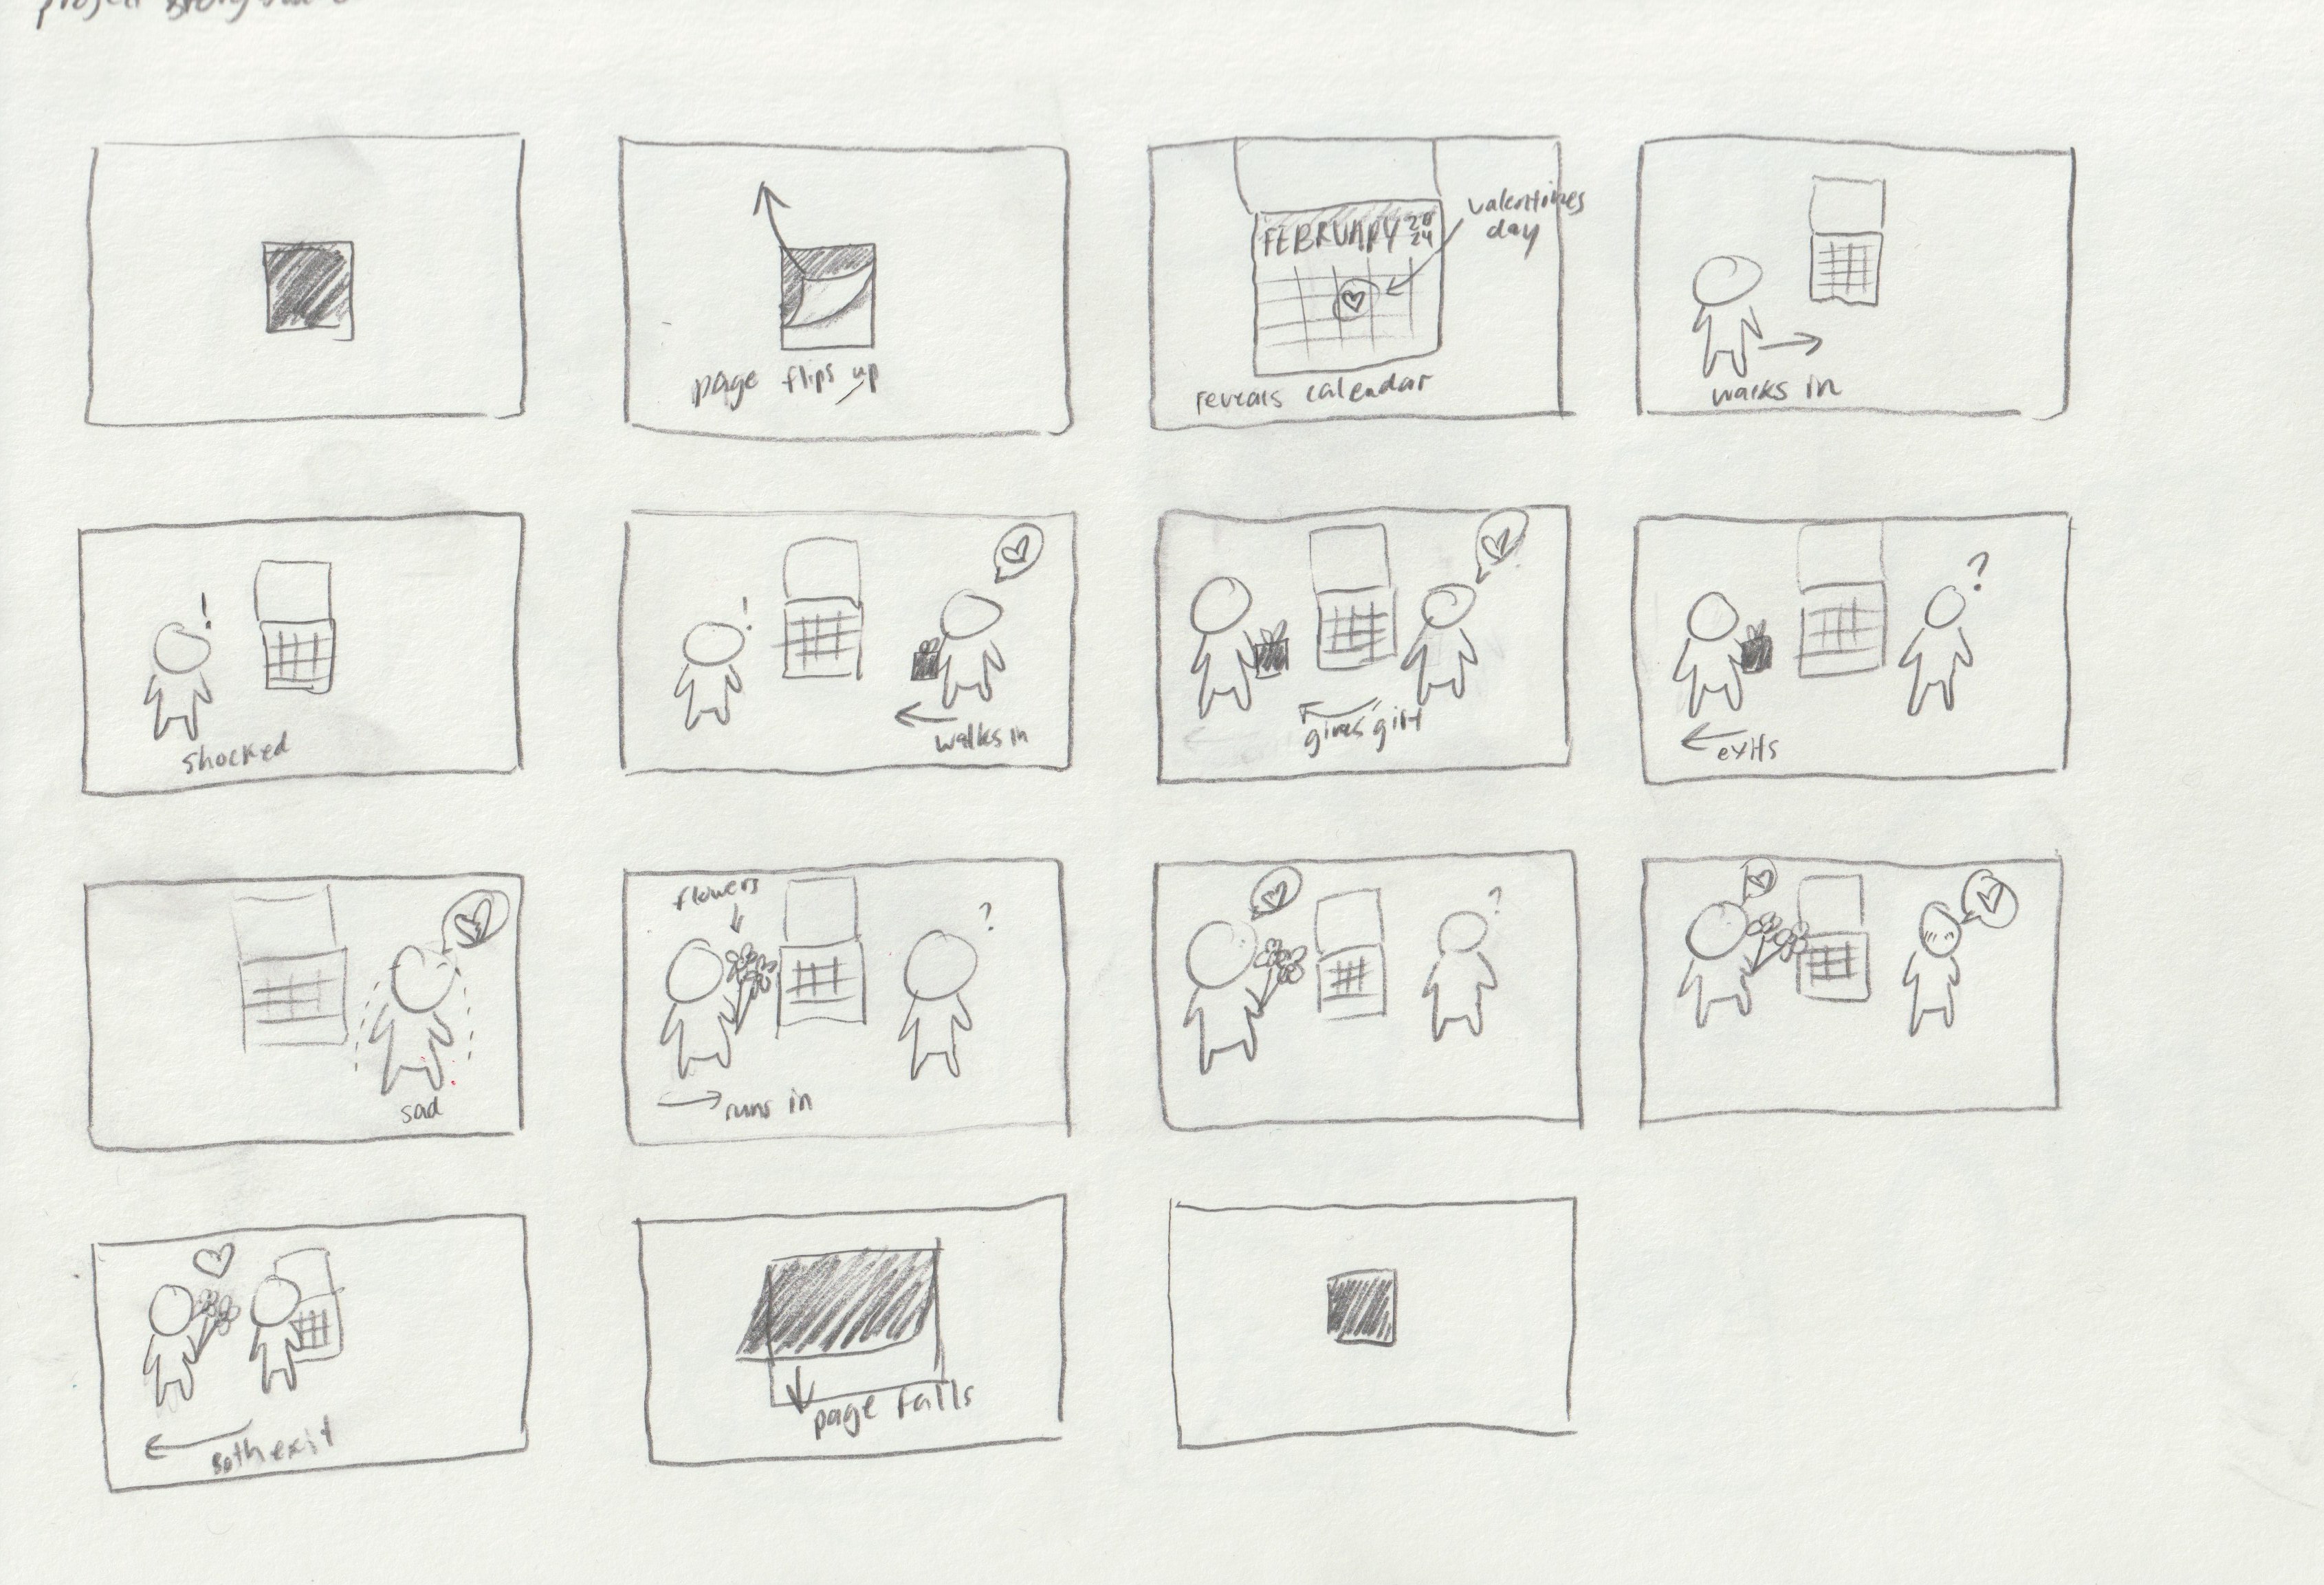 project
page flips up
FEBRUARY 20
24
valentines
day
reveals calendar
walks in
!
shocked
!
walks in
gives gift
?
exits
sad
flowers
?
runs in
?
both exit
page falls